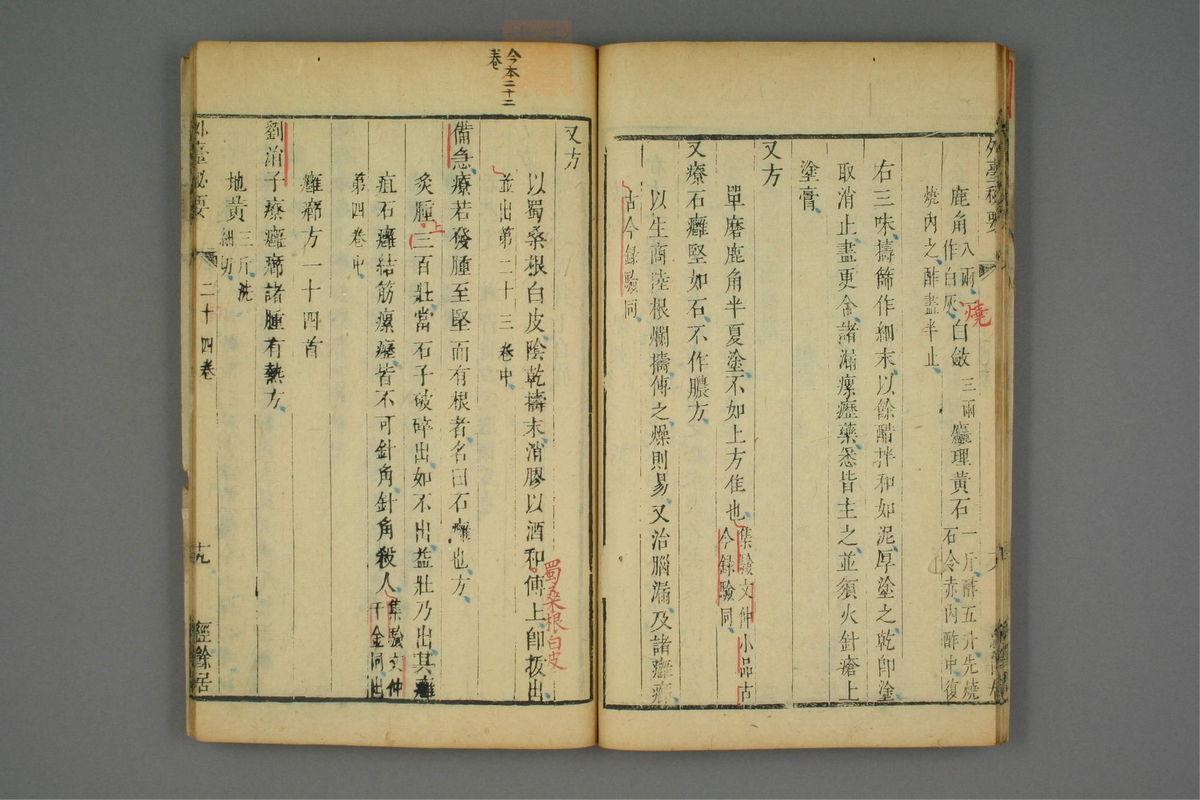 外臺秘要
鹿角八兩燒作白灰白斂三兩麤理黃石一斤酢五升先燒石令赤內酢中復
燒內之酢盡半止
右三味擣篩作細末以餘醋拌和如泥厚塗之乾即塗
取消止盡更合諸漏瘰癧藥悉皆主之並須火針瘡上
塗膏
又方
單磨鹿角半夏塗不如上方佳也集驗文仲小品古今録驗同
又療石癰堅如石不作膿方
以生商陸根爛擣傅之燥則易又治腦漏及諸癰癤
古今録驗同
今本二十二卷
又方
以蜀桑根白皮陰乾擣末消膠以酒和傅上即拔出
蜀桑根白皮
並出第二十三卷中
備急療若發腫至堅而有根者名曰石癰也方
灸腫上三百壯當石子破碎出如不出益壯乃出其癰
疽石癰結筋瘰癧皆不可針角針角殺人集驗文仲千金同出
第四卷中
癰癤方一十四首
劉涓子療癰癤諸腫有熱方
地黃三斤洗細切
外臺秘要
二十四卷
十九
經餘居